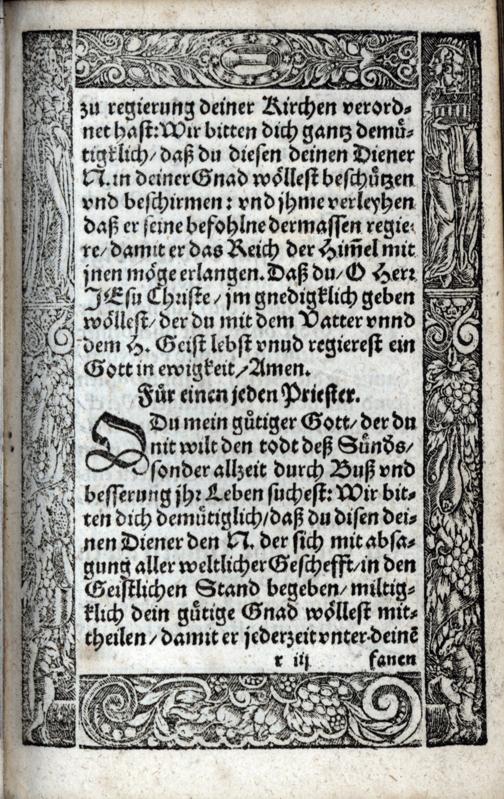 zu regierung deiner Kirchen verord⸗
net hast: Wir bitten dich gantz demuͤ⸗
tigklich/ daß du diesen deinen Diener
N. in deiner Gnad woͤllest beschuͤtzen
vnd beschirmen: vnd jhme verleyhen
daß er seine befohlne dermassen regie⸗
re/ damit er das Reich der Him̄el mit
jnen moͤge erlangen. Daß du/ O Herr
JEsu Christe/ jm gnedigklich geben
woͤllest/ der du mit dem Vatter vnnd
dem H. Geist lebst vnud regierest ein
Gott in ewigkeit/ Amen.
Fuͤr einen jeden Priester.
O Du mein guͤtiger Gott/ der du
nit wilt den todt deß Suͤnds/
sonder allzeit durch Buß vnd
besserung jhr Leben suchest: Wir bit⸗
ten dich demuͤtiglich/ daß du disen dei⸗
nen Diener den N. der sich mit absa⸗
gung aller weltlicher Geschefft/ in den
Geistlichen Stand begeben/ miltig⸗
klich dein guͤtige Gnad woͤllest mit⸗
theilen/ damit er jederzeit vnter deinē
r iij fanen